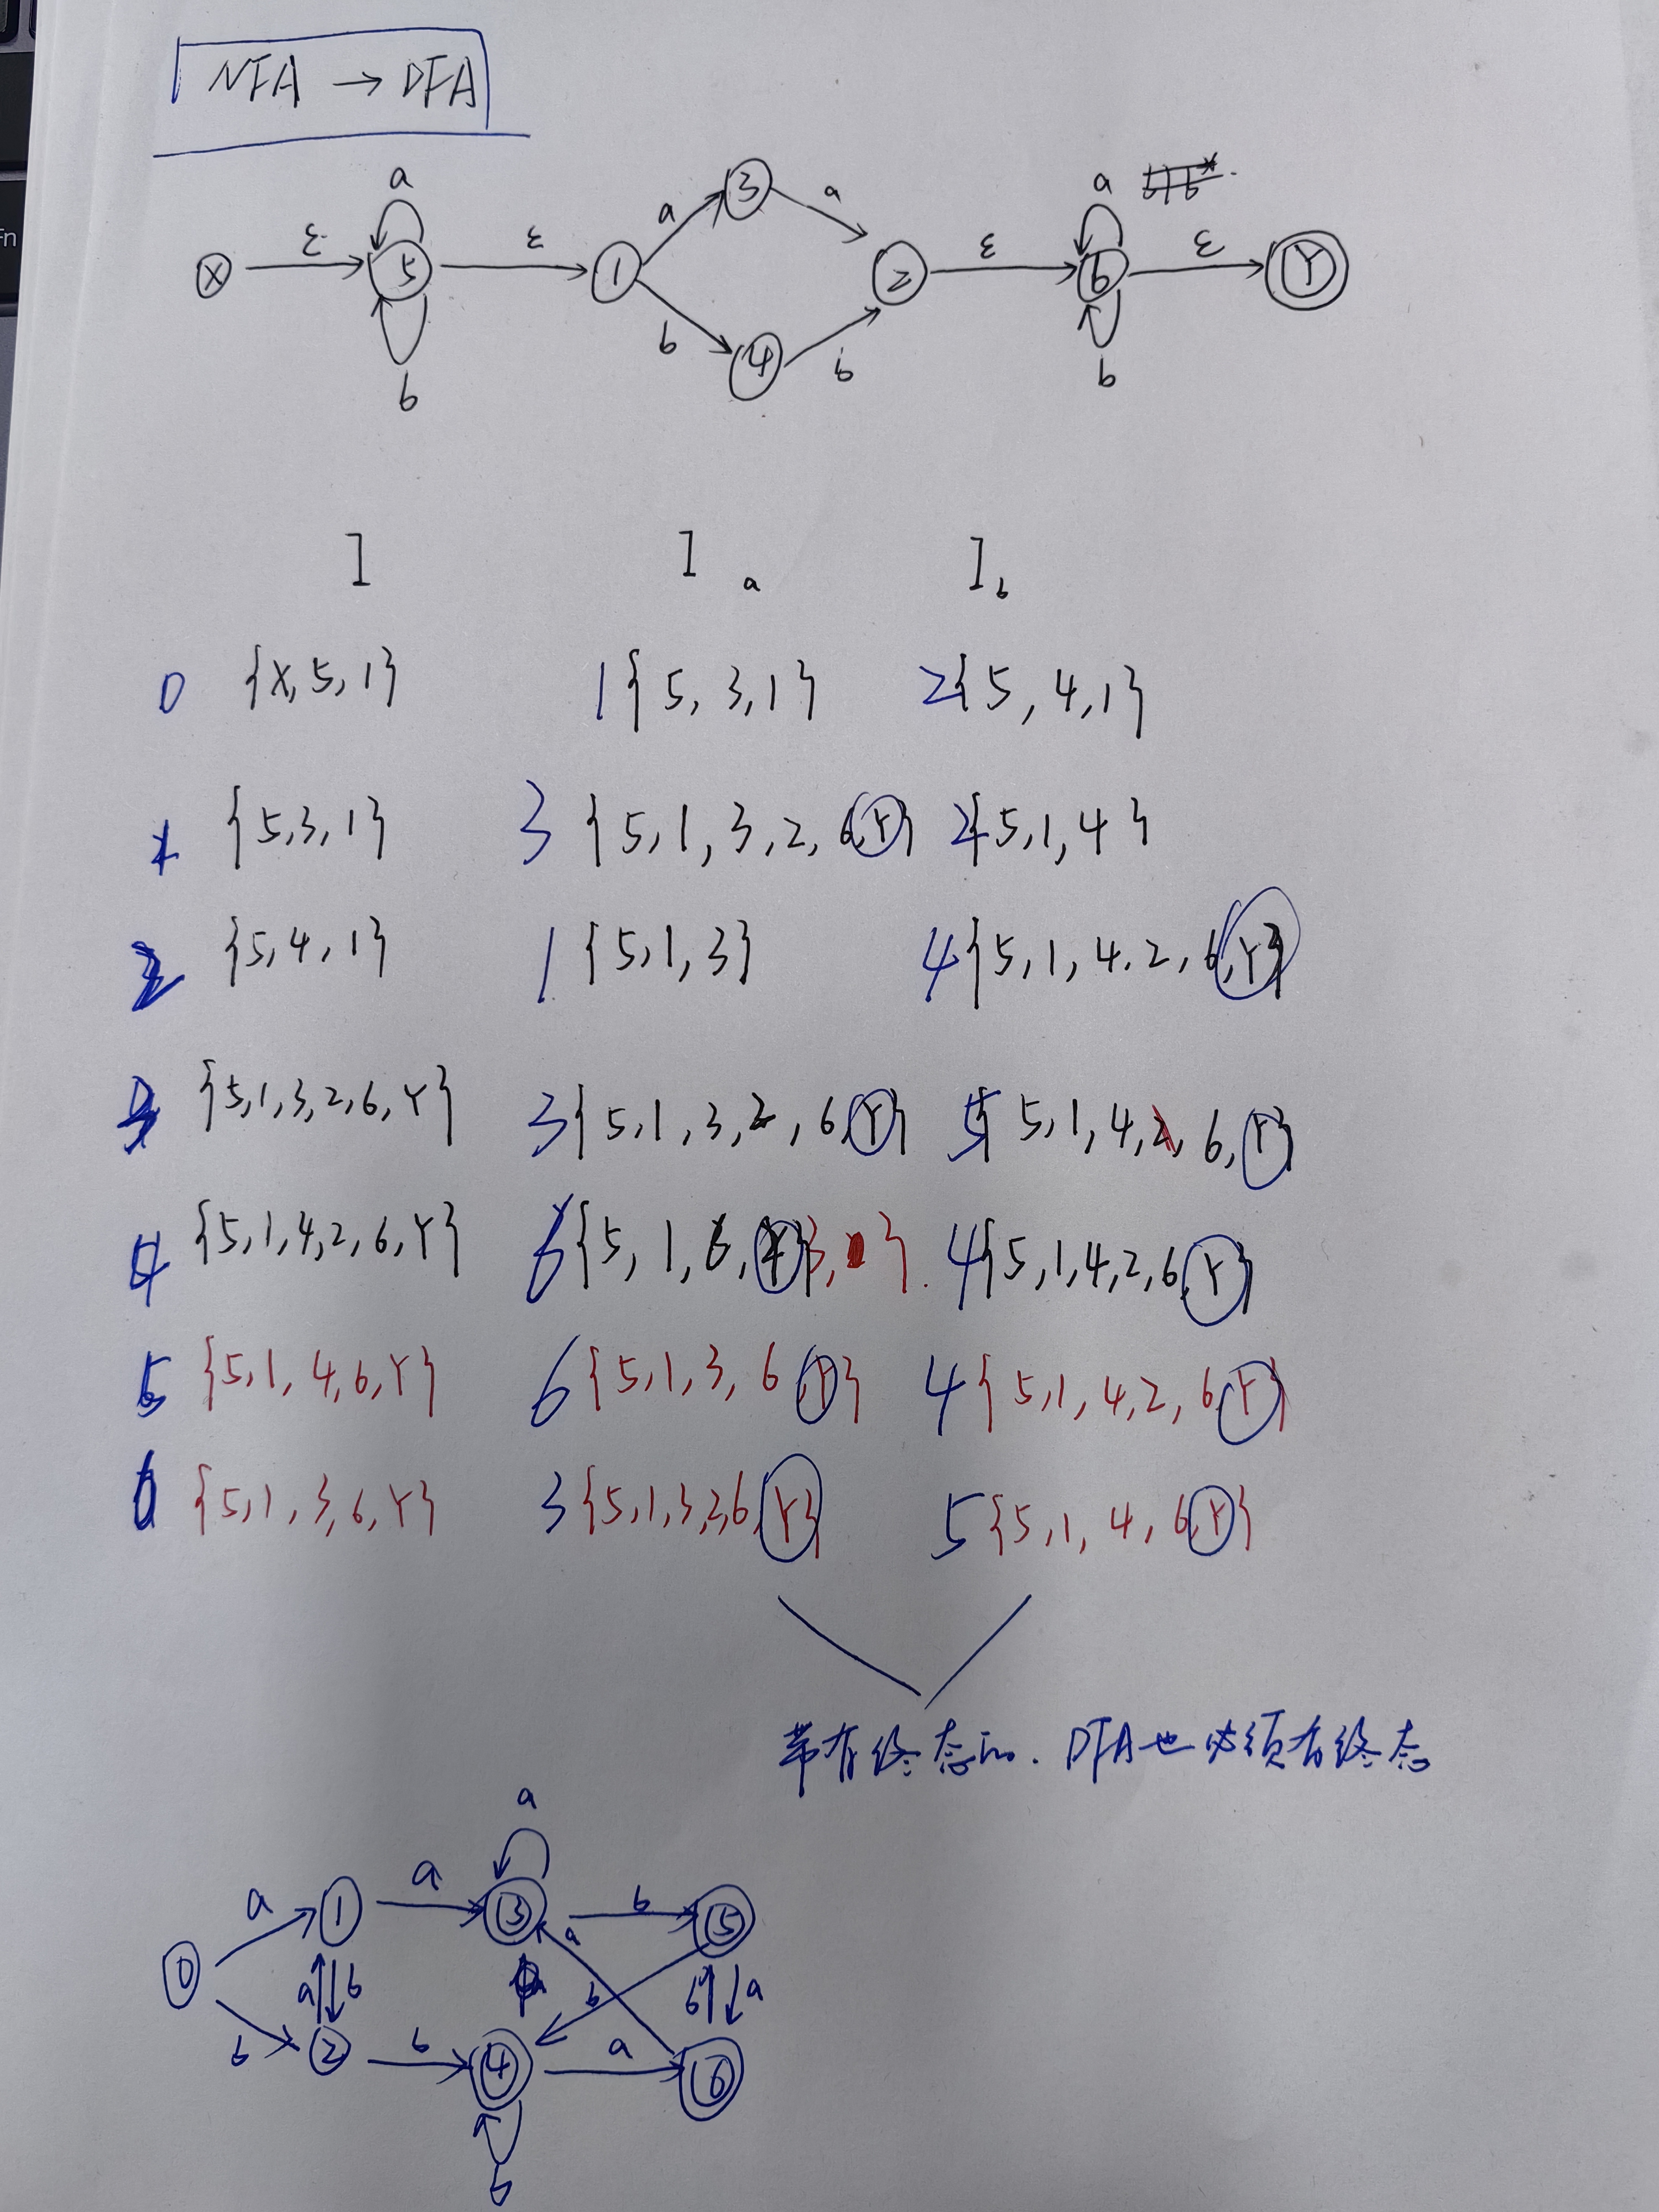 NFA → DFA
a a a b|b*
X ε 5 ε 1 a 3 a 2 ε 6 ε Y
b b 4 b b
I Ia Ib
0 {X,5,1} 1{5,3,1} 2{5,4,1}
1 {5,3,1} 3 {5,1,3,2,6,Y} 2{5,1,4}
2 {5,4,1} 1 {5,1,3} 4{5,1,4,2,6,Y}
3 {5,1,3,2,6,Y} 3{5,1,3,2,6,Y} 5{5,1,4,2,6,Y}
4 {5,1,4,2,6,Y} 6{5,1,6,Y}3, } 4{5,1,4,2,6,Y}
5 {5,1,4,6,Y} 6{5,1,3,6,Y} 4{5,1,4,2,6,Y}
6 {5,1,3,6,Y} 3{5,1,3,2,6,Y} 5{5,1,4,6,Y}
带有终态的. DFA也必须有终态
a
a 1 a 3 b 5
0 a b a b b a
b 2 b 4 a 6
b